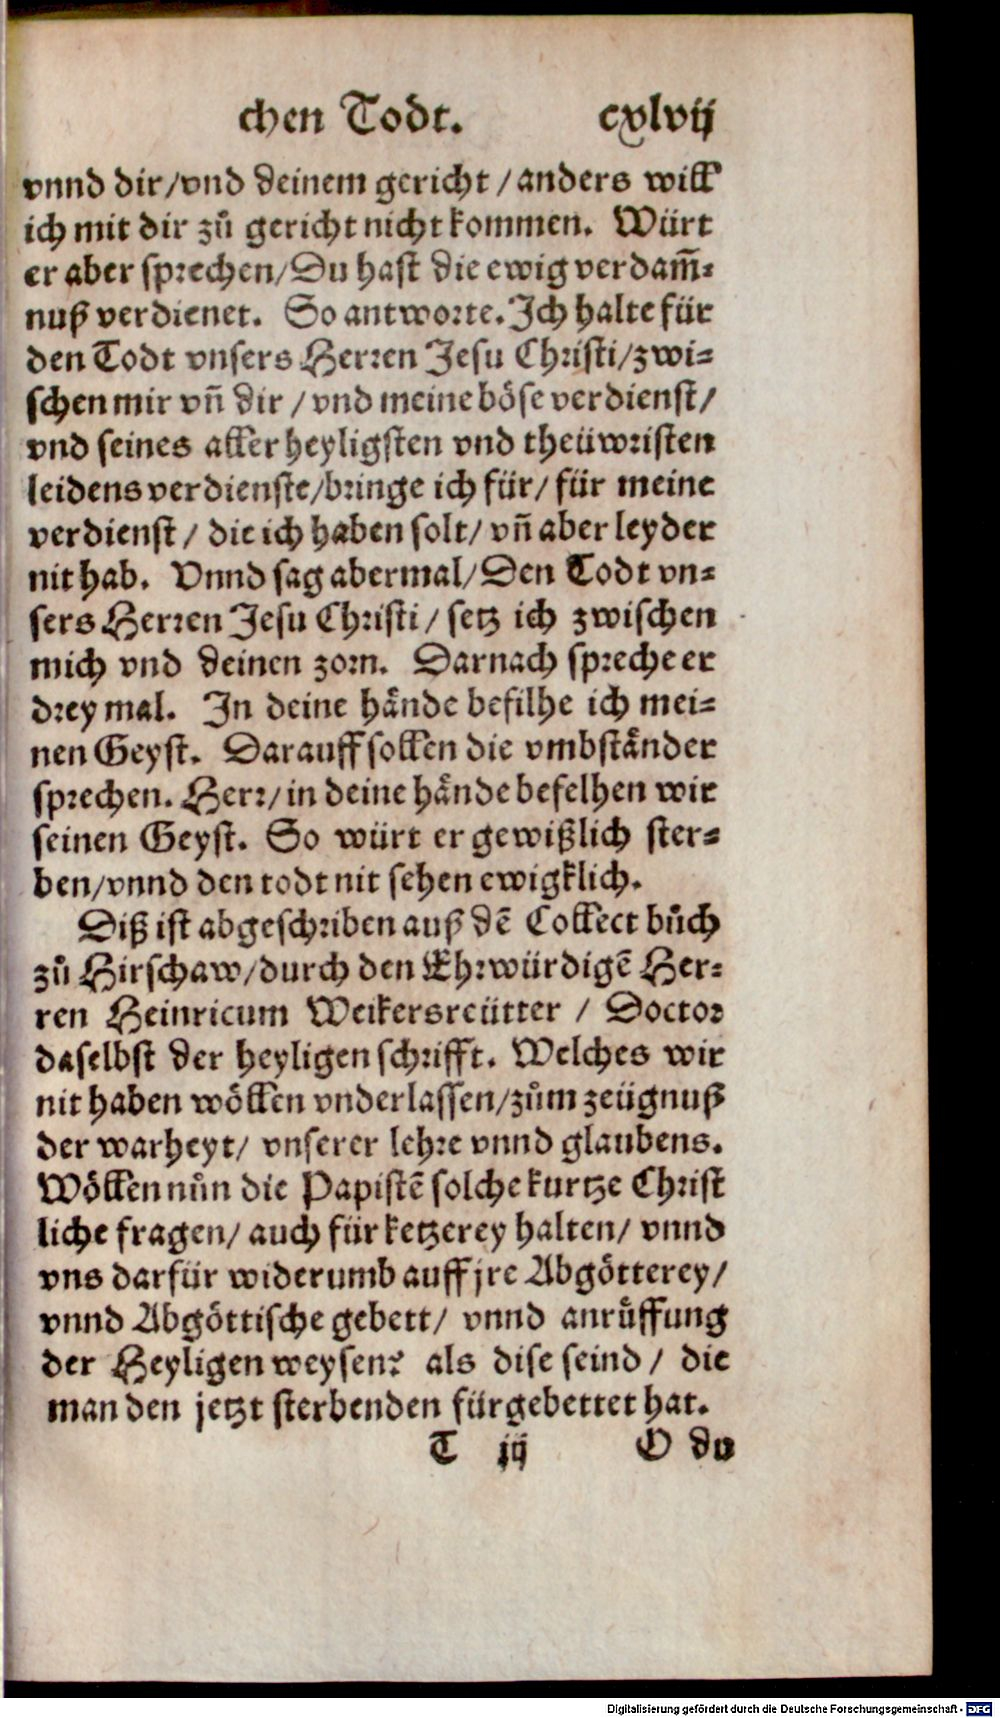 chen Todt. cxlvij
vnnd dir/vnd deinem gericht/anders will
ich mit dir zů gericht nicht kommen. Würt
er aber sprechen/Du hast die ewig verdam̃-
nuß verdienet. So antworte. Ich halte für
den Todt vnsers Herren Jesu Christi/zwi-
schen mir vñ dir/vnd meine böse verdienst/
vnd seines aller heyligsten vnd theüwristen
leidens verdienste/bringe ich für/für meine
verdienst/die ich haben solt/vñ aber leyder
nit hab. Vnnd sag abermal/Den Todt vn-
sers Herren Jesu Christi/setz ich zwischen
mich vnd deinen zorn. Darnach spreche er
drey mal. In deine hånde befilhe ich mei-
nen Geyst. Darauff sollen die vmbstånder
sprechen. Herr/in deine hånde befelhen wir
seinen Geyst. So würt er gewißlich ster-
ben/vnnd den todt nit sehen ewigklich.
Diß ist abgeschriben auß dẽ Collect bůch
zů Hirschaw/durch den Ehrwürdigẽ Her-
ren Heinricum Weikersreütter/Doctor
daselbst der heyligen schrifft. Welches wir
nit haben wöllen vnderlassen/zům zeügnuß
der warheyt/vnserer lehre vnnd glaubens.
Wöllen nůn die Papistẽ solche kurtze Christ
liche fragen/auch für ketzerey halten/vnnd
vns darfür widerumb auff jre Abgötterey/
vnnd Abgöttische gebett/vnnd anrůffung
der Heyligen weysen? als dise seind/die
man den jetzt sterbenden fürgebettet hat.
T ij O du
Digitalisierung gefördert durch die Deutsche Forschungsgemeinschaft - DFG